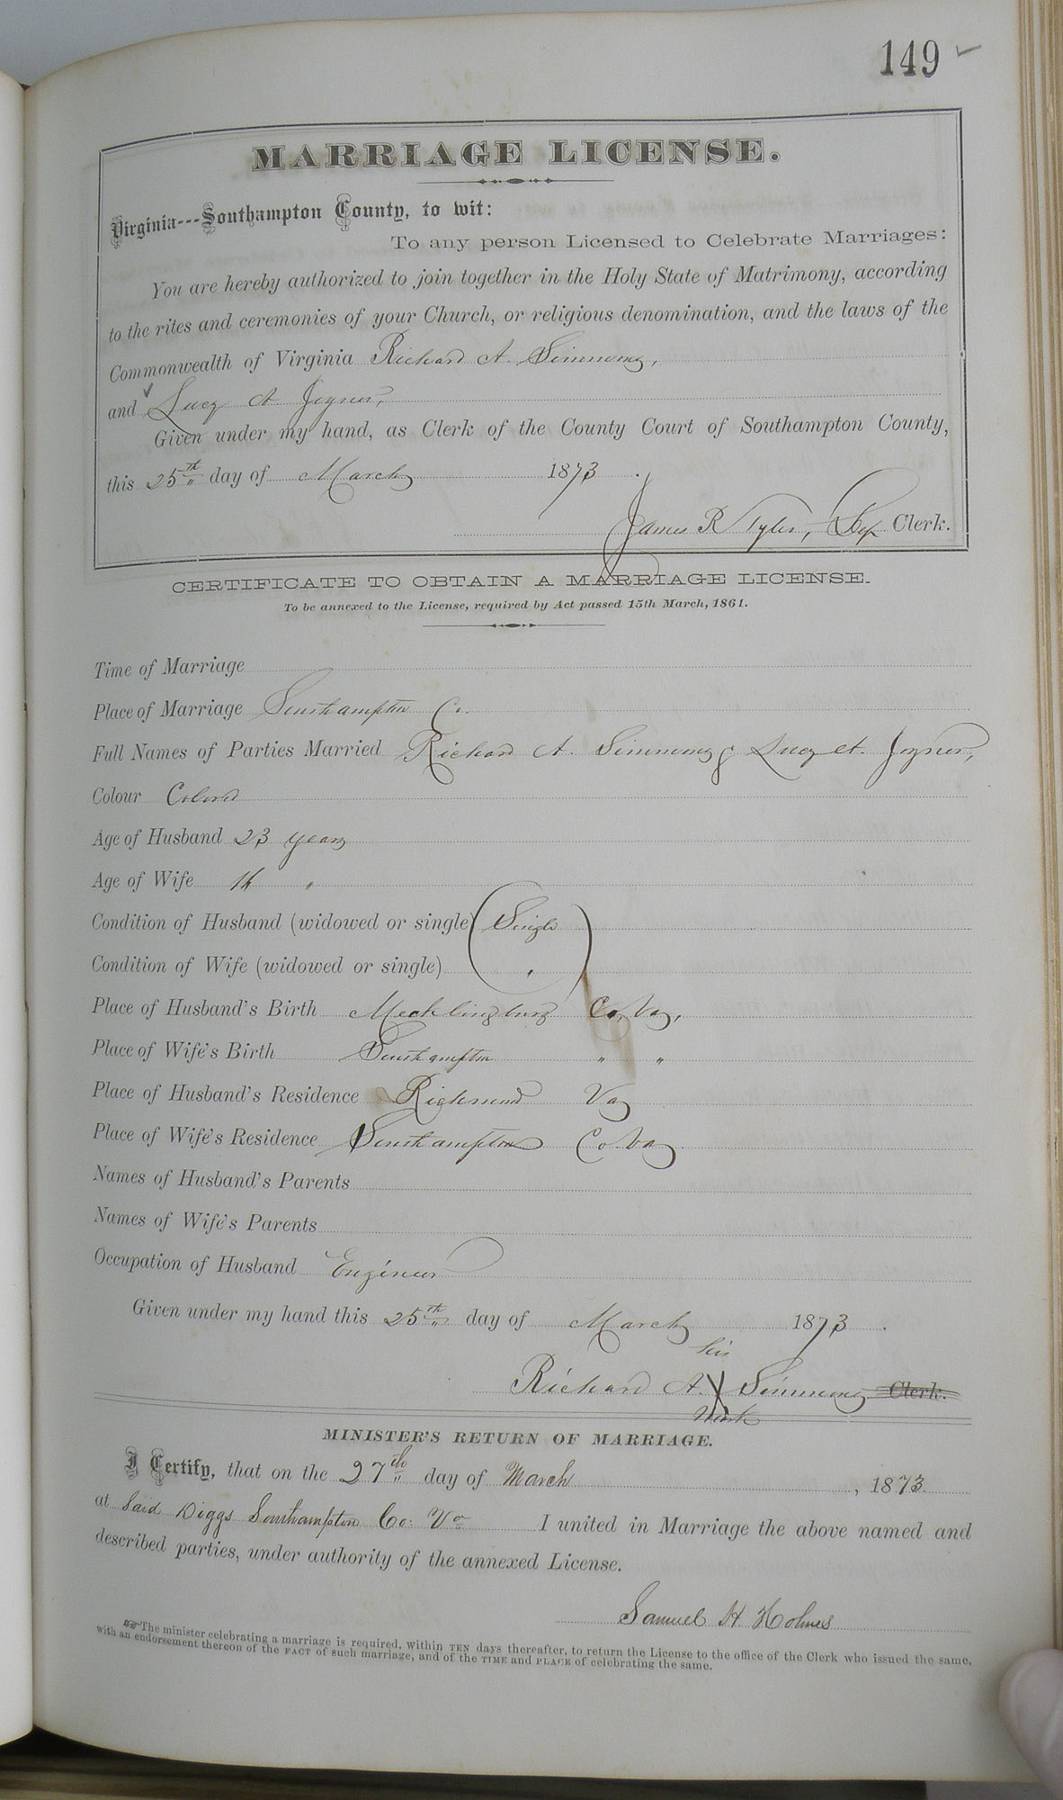 149
MARRIAGE LICENSE.
Virginia---Southampton County, to wit:
To any person Licensed to Celebrate Marriages:
You are hereby authorized to join together in the Holy State of Matrimony, according
to the rites and ceremonies of your Church, or religious denomination, and the laws of the
Commonwealth of Virginia Richard A. Simmons,
and Lucy A Joyner,
Given under my hand, as Clerk of the County Court of Southampton County,
this 25th day of March 1873.
James R Tyler, Dep Clerk.
CERTIFICATE TO OBTAIN A MARRIAGE LICENSE.
To be annexed to the License, required by Act passed 15th March, 1861.
Time of Marriage
Place of Marriage Southampton Co.
Full Names of Parties Married Richard A. Simmons & Lucy A. Joyner,
Colour Colored
Age of Husband 23 years
Age of Wife "
Condition of Husband (widowed or single) Single
Condition of Wife (widowed or single) "
Place of Husband's Birth Mecklingburg Co, Va,
Place of Wife's Birth Southampton " "
Place of Husband's Residence Richmond Va
Place of Wife's Residence Southampton Co. Va
Names of Husband's Parents
Names of Wife's Parents
Occupation of Husband Engineer
Given under my hand this 25th day of March 1873.
his
Richard A. X Simmons Clerk.
Mark
MINISTER'S RETURN OF MARRIAGE.
I Certify, that on the 27th day of March, 1873
at Said Diggs Southampton Co: Va I united in Marriage the above named and
described parties, under authority of the annexed License.
Samuel H. Holmes
The minister celebrating a marriage is required, within TEN days thereafter, to return the License to the office of the Clerk who issued the same,
with an endorsement thereon of the FACT of such marriage, and of the TIME and PLACE of celebrating the same.